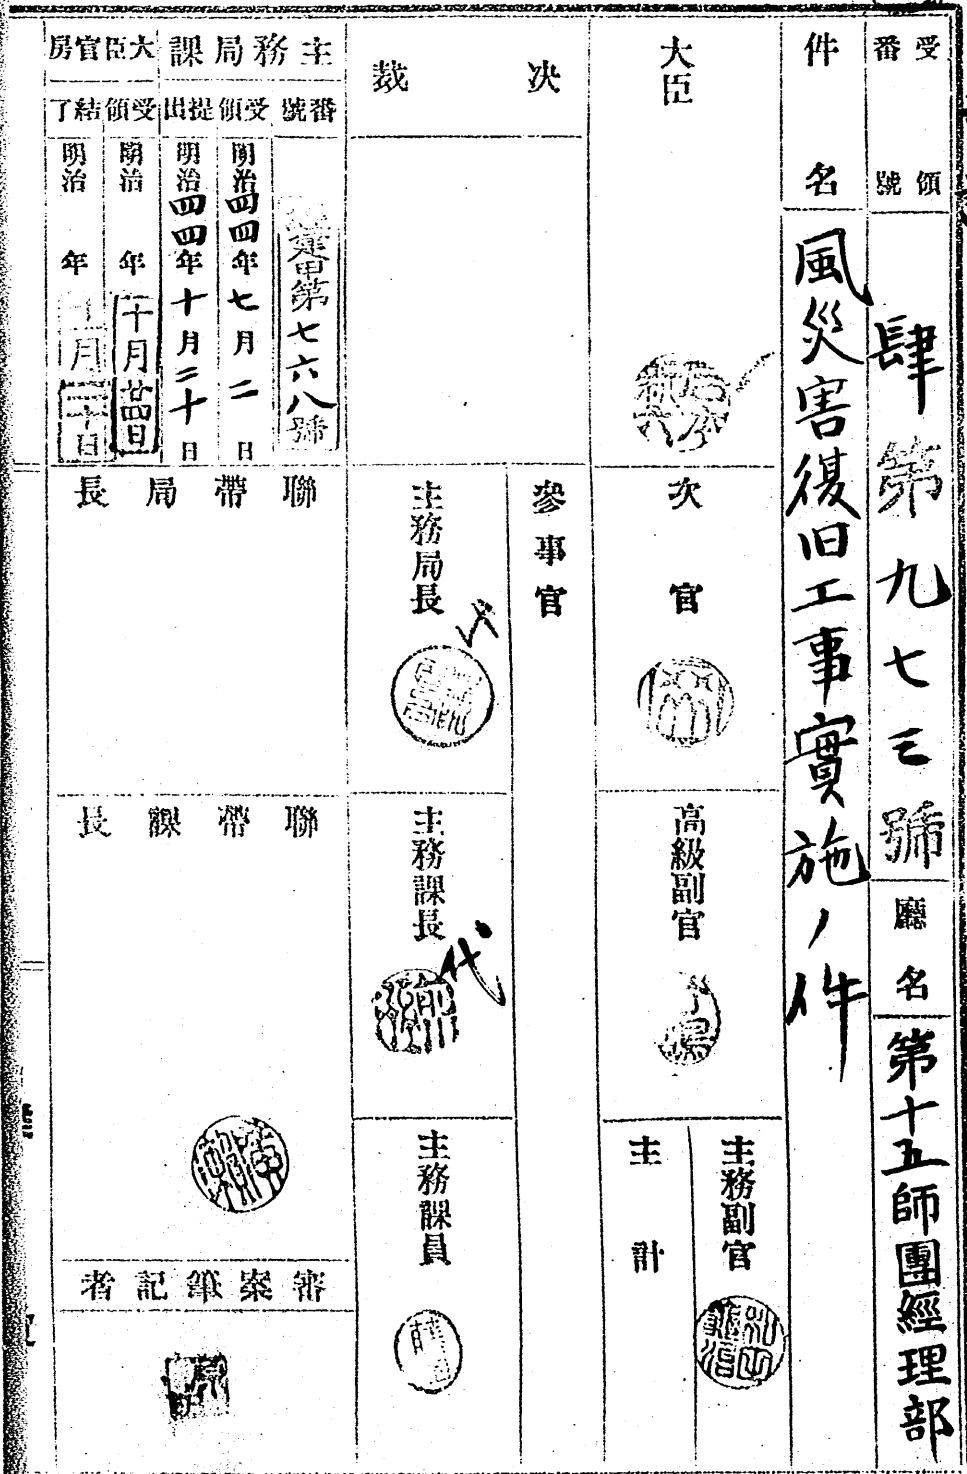 受領番號
肆第九七三號
廳名
第十五師團經理部
件名
風災害復旧工事實施ノ件
大臣
次官
高級副官
主務副官
主計
決裁
參事官
主務局長
主務課長
代
主務課員
主務局課
番號
建甲第七六八號
受領
明治四四年七月二日
提出
明治四四年十月二十日
大臣官房
受領
明治 年十月廿四日
結了
明治 年 月 日
聯帶局長
聯帶課長
審案筆記者